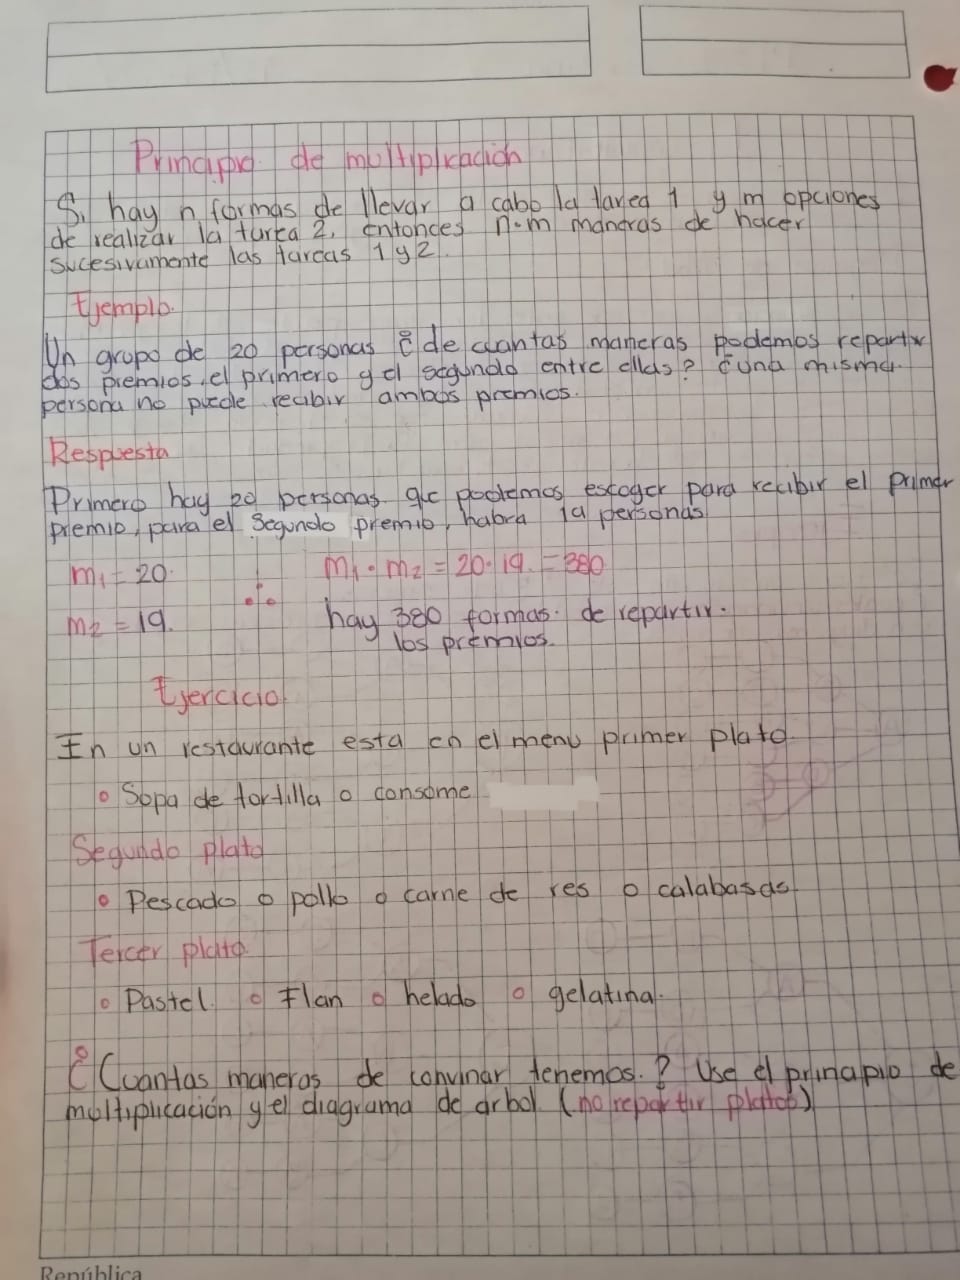 Principio de multiplicación
Si hay n formas de llevar a cabo la tarea 1 y m opciones
de realizar la turea 2, entonces n·m maneras de hacer
sucesivamente las tareas 1 y 2.
Ejemplo.
Un grupo de 20 personas ¿de cuantas maneras podemos repartir
dos premios, el primero y el segundo entre ellas? ¿una misma
persona no puede recibir ambos premios.
Respuesta
Primero hay 20 personas que podemos escoger para recibir el primer
premio, para el segundo premio, habra 19 personas
m₁ = 20. ∴ m₁ · m₂ = 20 · 19. = 380
m₂ = 19. hay 380 formas de repartir.
los premios.
Ejercicio
En un restaurante esta en el menu primer plato
o Sopa de tortilla o consome
Segundo plato
o Pescado o pollo o carne de res o calabasas
Tercer plato
o Pastel. o Flan o helado o gelatina.
¿Cuantas maneras de convinar tenemos.? Use el principio de
multiplicación y el diagrama de arbol (no repartir platos)
República